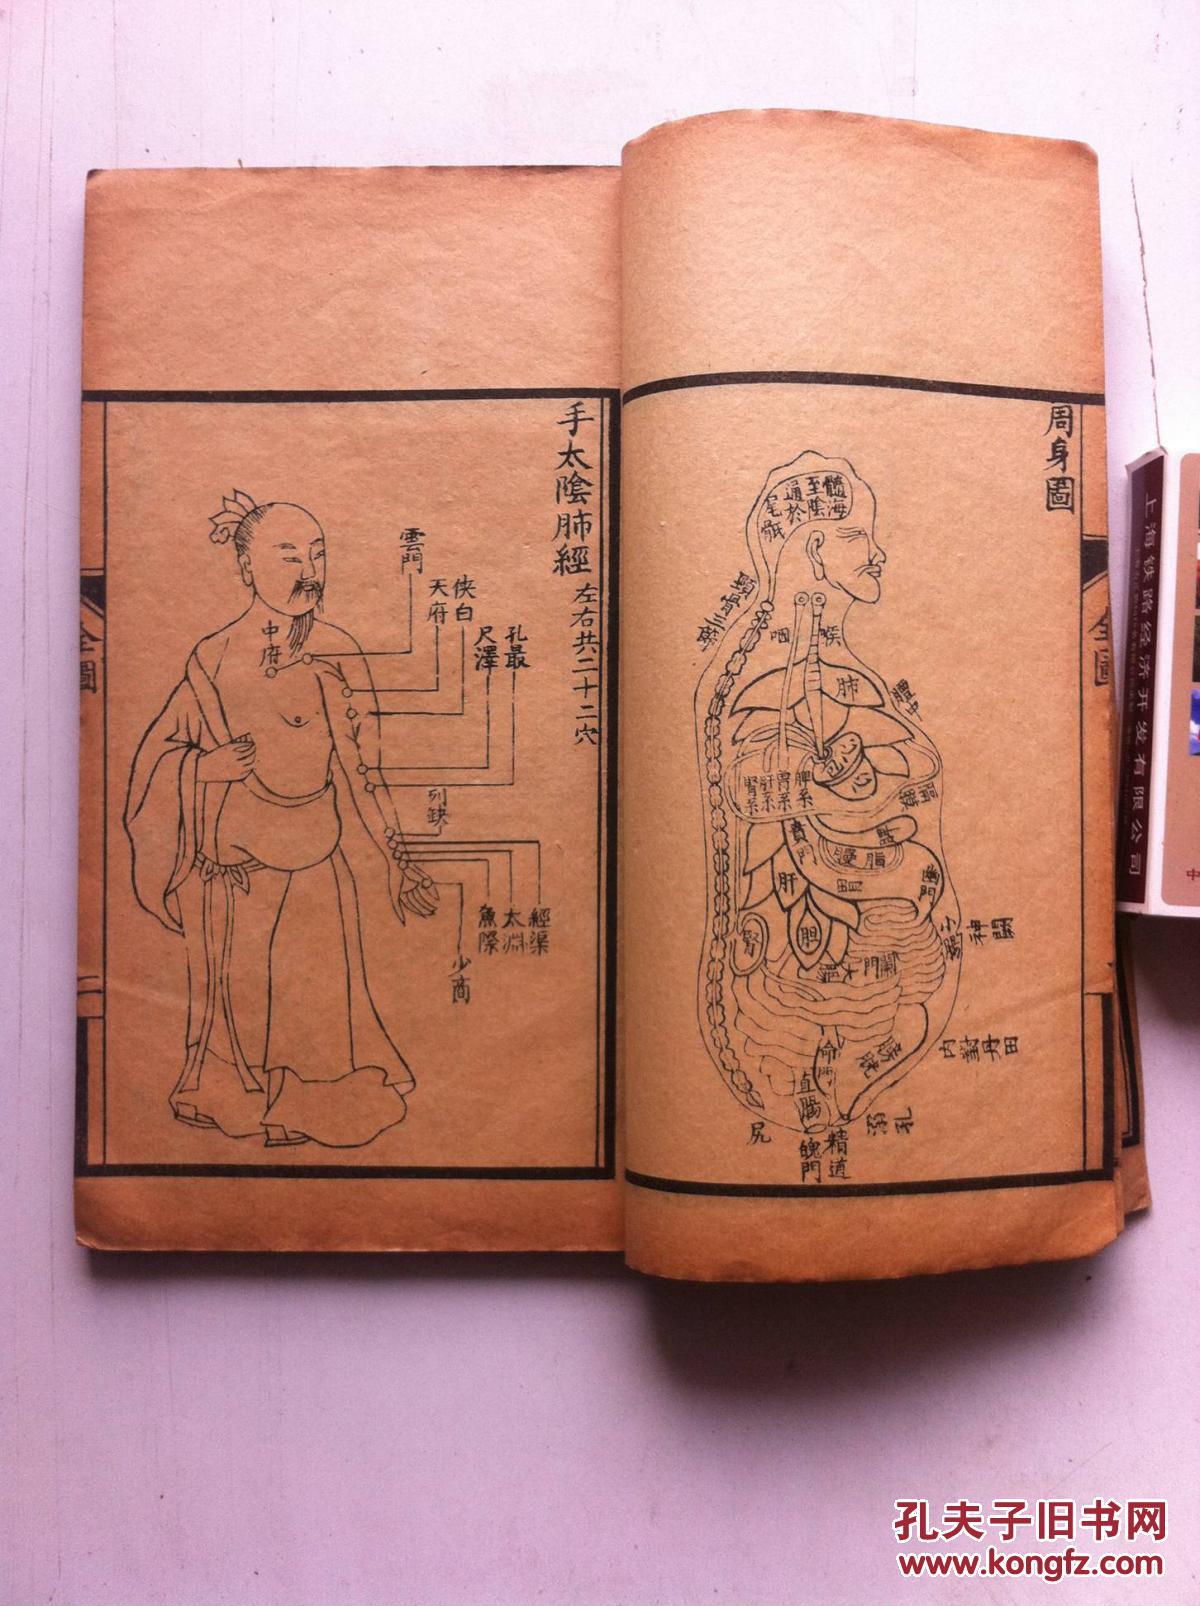 周身圖
髓海
至陰
通於
尾骶
頸骨三節
咽
喉
肺
膻中
心
膈膜
脾系
胃系
肝系
腎系
賁門
脾
胃
幽門
肝
胆
腎
闌門
大腸
神闕
命門
膀胱
直腸
內對丹田
尻
溺孔
精道
魄門
全圖
手太陰肺經 左右共二十二穴
雲門
中府
天府
俠白
尺澤
孔最
列缺
經渠
太淵
魚際
少商
全圖
二
上海铁路经济开发有限公司
中
孔夫子旧书网
www.kongfz.com